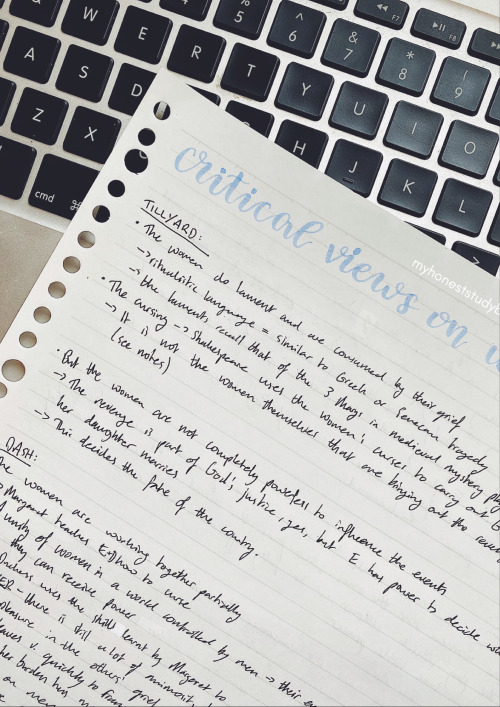 W E R T Y U I O
% 5
^ 6
& 7
* 8
( 9
F7
F8
A S D H J K L
Z X
cmd ⌘
>
critical views on
myhoneststudyb
TILLYARD:
• The women do lament and are consumed by their grief
→ ritualistic language = similar to Greek or Senecan tragedy
→ the laments recall that of the 3 Marys in medieval mystery
• The cursing → Shakespeare uses the women's curses to carry out
→ It is not the women themselves that are bringing out the
(see notes)
• But the women are not completely powerless to influence the events
→ The revenge is part of God's justice, yes, but E has power to decide
her daughter marries
→ This decides the fate of the country.
DASH:
The women are working together partially
Margaret teaches E how to curse
unity of women in a world controlled by men → their
they can receive power
uses the skills learnt by Margaret to
there is still a lot of
pleasure in the others' grief
v. quickly to
her burden
on